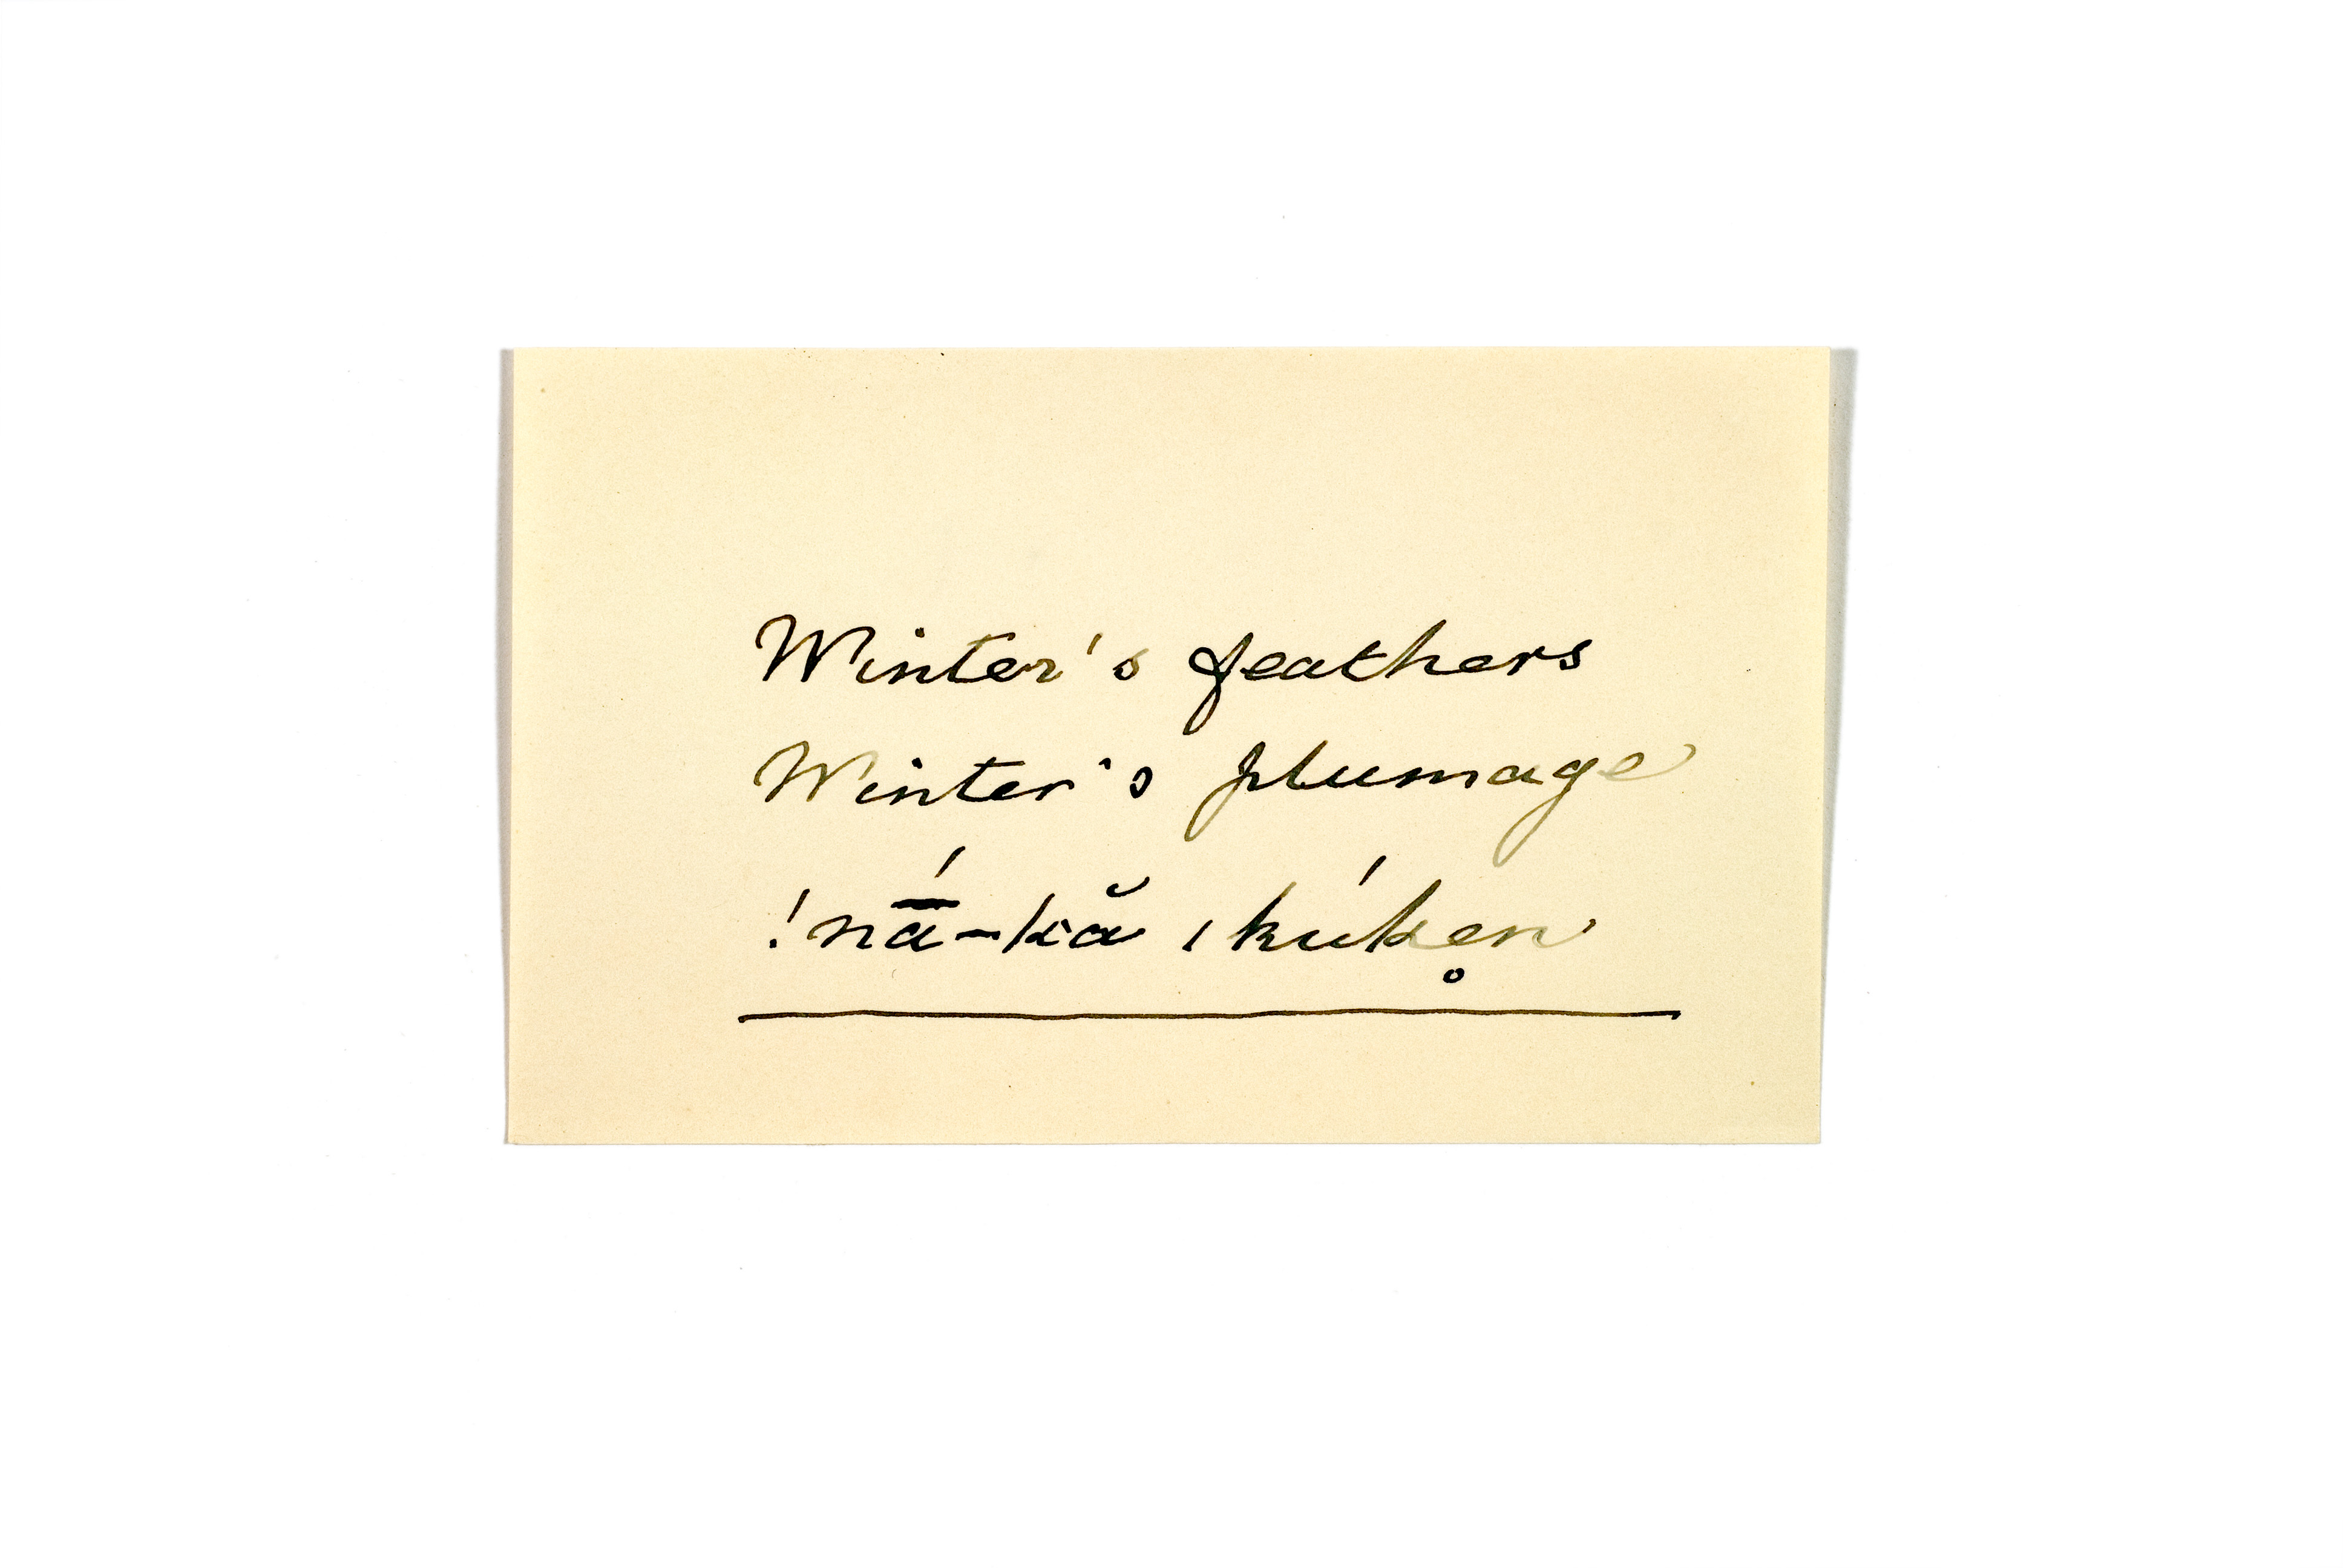 Winter's feathers
Winter's plumage
!nā́-kă ǀkúken̥